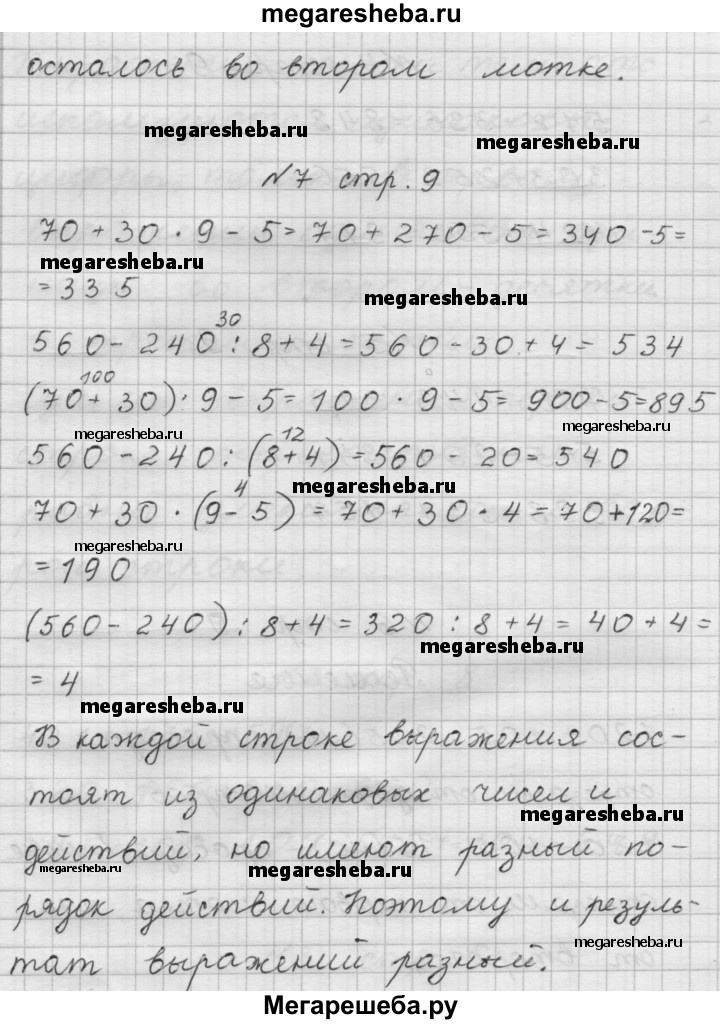 megaresheba.ru
осталось во втором мотке.
megaresheba.ru
megaresheba.ru
№7 стр. 9
70 + 30 · 9 - 5 = 70 + 270 - 5 = 340 - 5 =
megaresheba.ru
= 335
megaresheba.ru
30
560 - 240 : 8 + 4 = 560 - 30 + 4 = 534
100
(70 + 30) · 9 - 5 = 100 · 9 - 5 = 900 - 5 = 895
megaresheba.ru
megaresheba.ru
12
560 - 240 : (8 + 4) = 560 - 20 = 540
megaresheba.ru
4
70 + 30 · (9 - 5) = 70 + 30 · 4 = 70 + 120 =
megaresheba.ru
= 190
(560 - 240) : 8 + 4 = 320 : 8 + 4 = 40 + 4 =
megaresheba.ru
= 4
megaresheba.ru
В каждой строке выражения сос-
тоят из одинаковых чисел и
megaresheba.ru
действий, но имеют разный по-
megaresheba.ru
megaresheba.ru
рядок действий. Поэтому и резуль-
megaresheba.ru
тат выражений разный.
Мегарешеба.ру